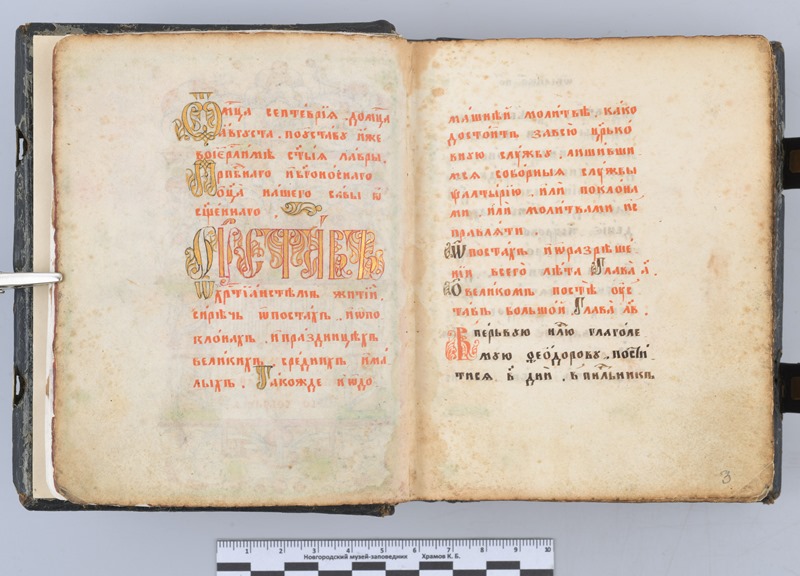 Мц҃а септеврїа . до мц҃а
а҆́вгуста . по уставу и҆́же
во і҆ерⷭ҇аимѣ ст҃ы́ѧ ла́вры .
Прпⷣбнаго и҆ бг҃оно́снаго
ѻ҆ц҃а́ на́шего са́вы ѡ҆
сщ҃е́ннаго .
Ѡ҆ хрⷭ҇тїа́нстѣмъ житїи .
си́рѣчь ѡ҆ посте́хъ . и҆ ѡ҆ по
кло́нахъ . и҆ пра́здницѣхъ
вели́кихъ . сре́днихъ и҆ ма́
лыхъ . Та́кожде и҆ ѡ҆ до
ма́шнѣй моли́твѣ . ка́ко
досто́итъ за всю̀ цр҃ко́
вную слу́жбу . лиши́вши
мсѧ собо́рныѧ слу́жбы
ѱалты́рїю . и҆лѝ покло́на
ми . и҆лѝ моли́твами и҆с
правлѧ́ти
Ѡ҆ посте́хъ и҆ ѡ҆ разрѣше́
нїи всего̀ лѣ́та Глава̀ а҃ .
Ѡ҆ вели́комъ постѣ̀ ѹ҆с
та́въ большо́й Глава̀ в҃ .
Въ пе́рвую нⷣлю глаго́ле
мую ѳео́дорову . пости́
тисѧ . є҃ дни̑й . въ пⷩ҇дѣ́льникъ
3
Новгородский музей-заповедник Храмов К. Б.
1 2 3 4 5 6 7 8 9 10